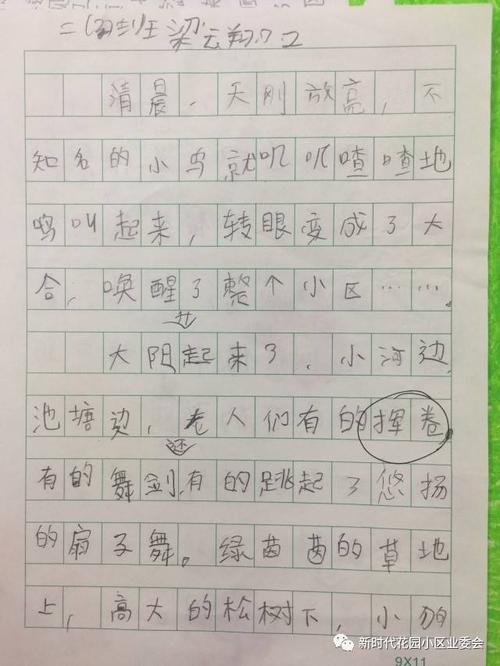 二(4)班 梁云翔
清晨,天刚放亮,不
知名的小鸟就叽叽喳喳地
鸣叫起来,转眼变成了大
合,唤醒了整个小区……
大阳起来了,小河边
升
池塘边,老人们有的挥卷
有的舞剑,有的跳起了悠扬
还
的扇子舞。绿茵茵的草地
上,高大的松树下,小
新时代花园小区业委会
9X11